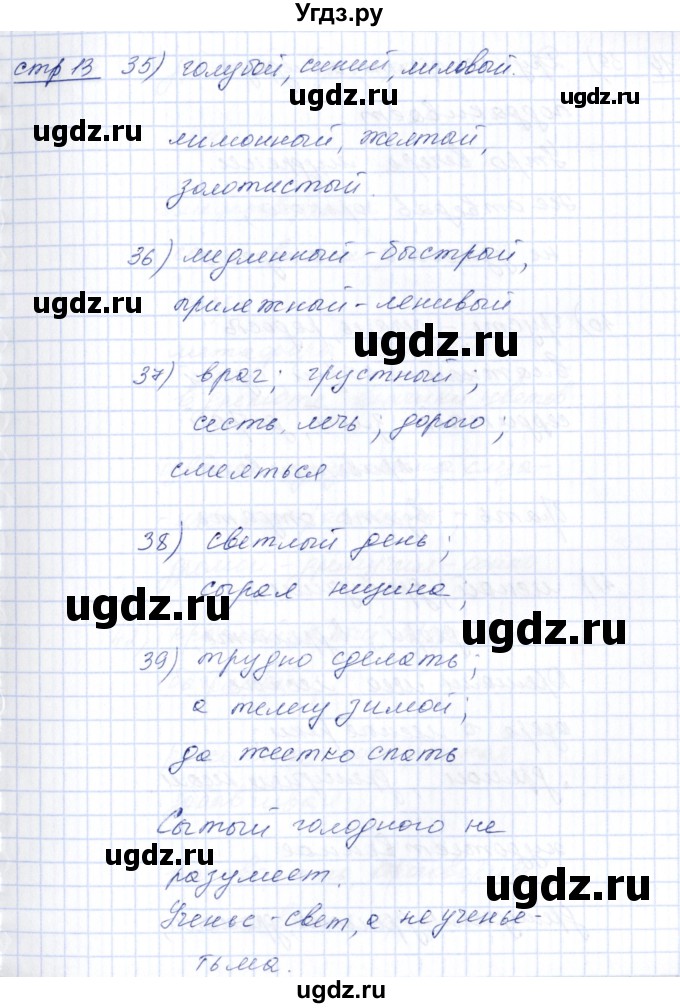 Угдз.ру
стр 13 35) голубой, синий, лиловый.
ugdz.ru ugdz.ru
лимонный, желтый,
золотистый.
36) медленный - быстрый,
ugdz.ru прилежный - ленивый
ugdz.ru
37) враг; грустный;
сесть, лечь; дорого;
смеяться
38) светлый день;
сырая нищина;
ugdz.ru ugdz.ru
39) трудно сделать;
а телегу зимой;
да жестко спать
Сытый голодного не
ugdz.ru разумеет. ugdz.ru
Ученье - свет, а неученье -
тьма.
ugdz.ru
Угдз.ру